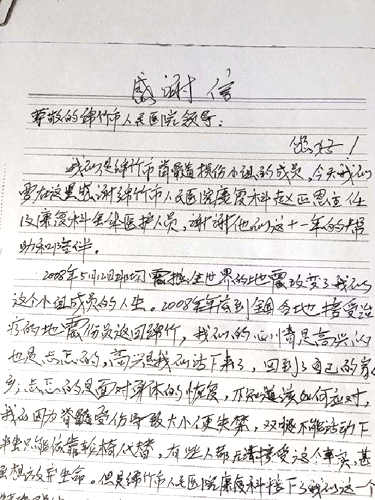 感谢信
尊敬的绵竹市人民医院领导:
您好!
我们是绵竹市脊髓损伤小组的成员,今天我们
要在这里感谢绵竹市人民医院康复科赵正恩主任
及康复科全体医护人员,谢谢他们这十一年的帮
助和陪伴。
2008年5月12日那场震撼全世界的地震改变了我们
这个小组成员的人生。2008年年底到全国各地接受治
疗的地震伤员返回绵竹,我们的心情是高兴的
也是忐忑的,高兴是我们活下来了,回到了自己的家
乡;忐忑的是面对身体的恢复,不知道该如何应对,
我们因为脊髓受伤导致大小便失禁,双腿不能活动下
半生只能依靠轮椅代替,有些人都无法接受这个事实,甚
至想放弃生命。但是绵竹市人民医院康复科接下了我们这一个